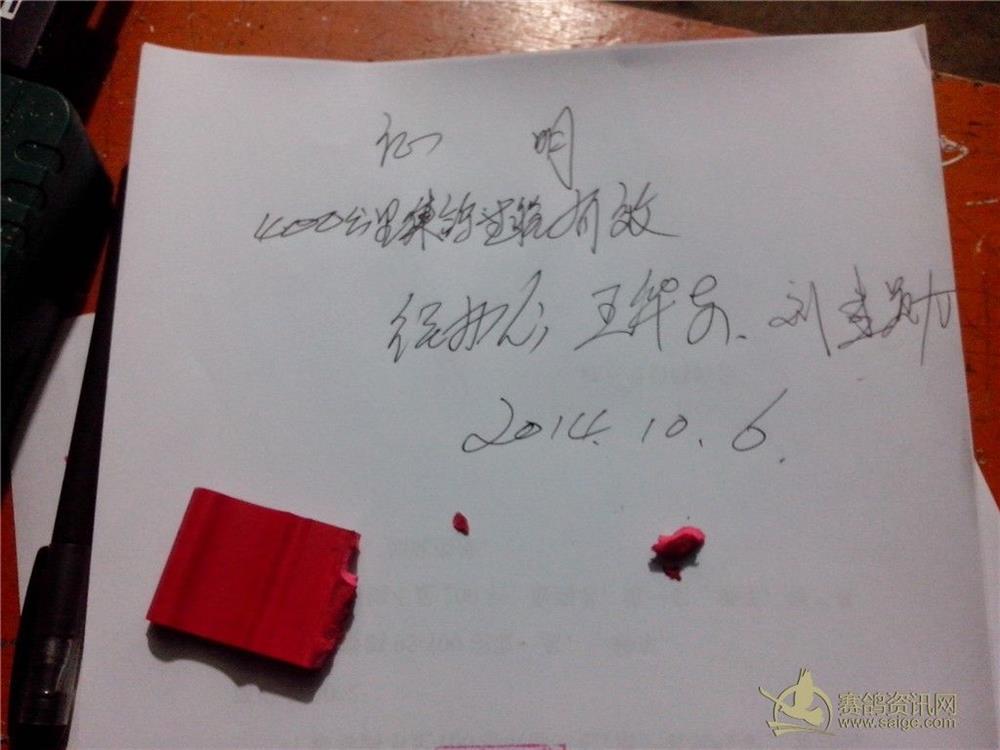 证 明
400公里集鸽进笼有效
经办人 王华安、刘圭勋
2014.10.6.
赛鸽资讯网
www.saigc.com